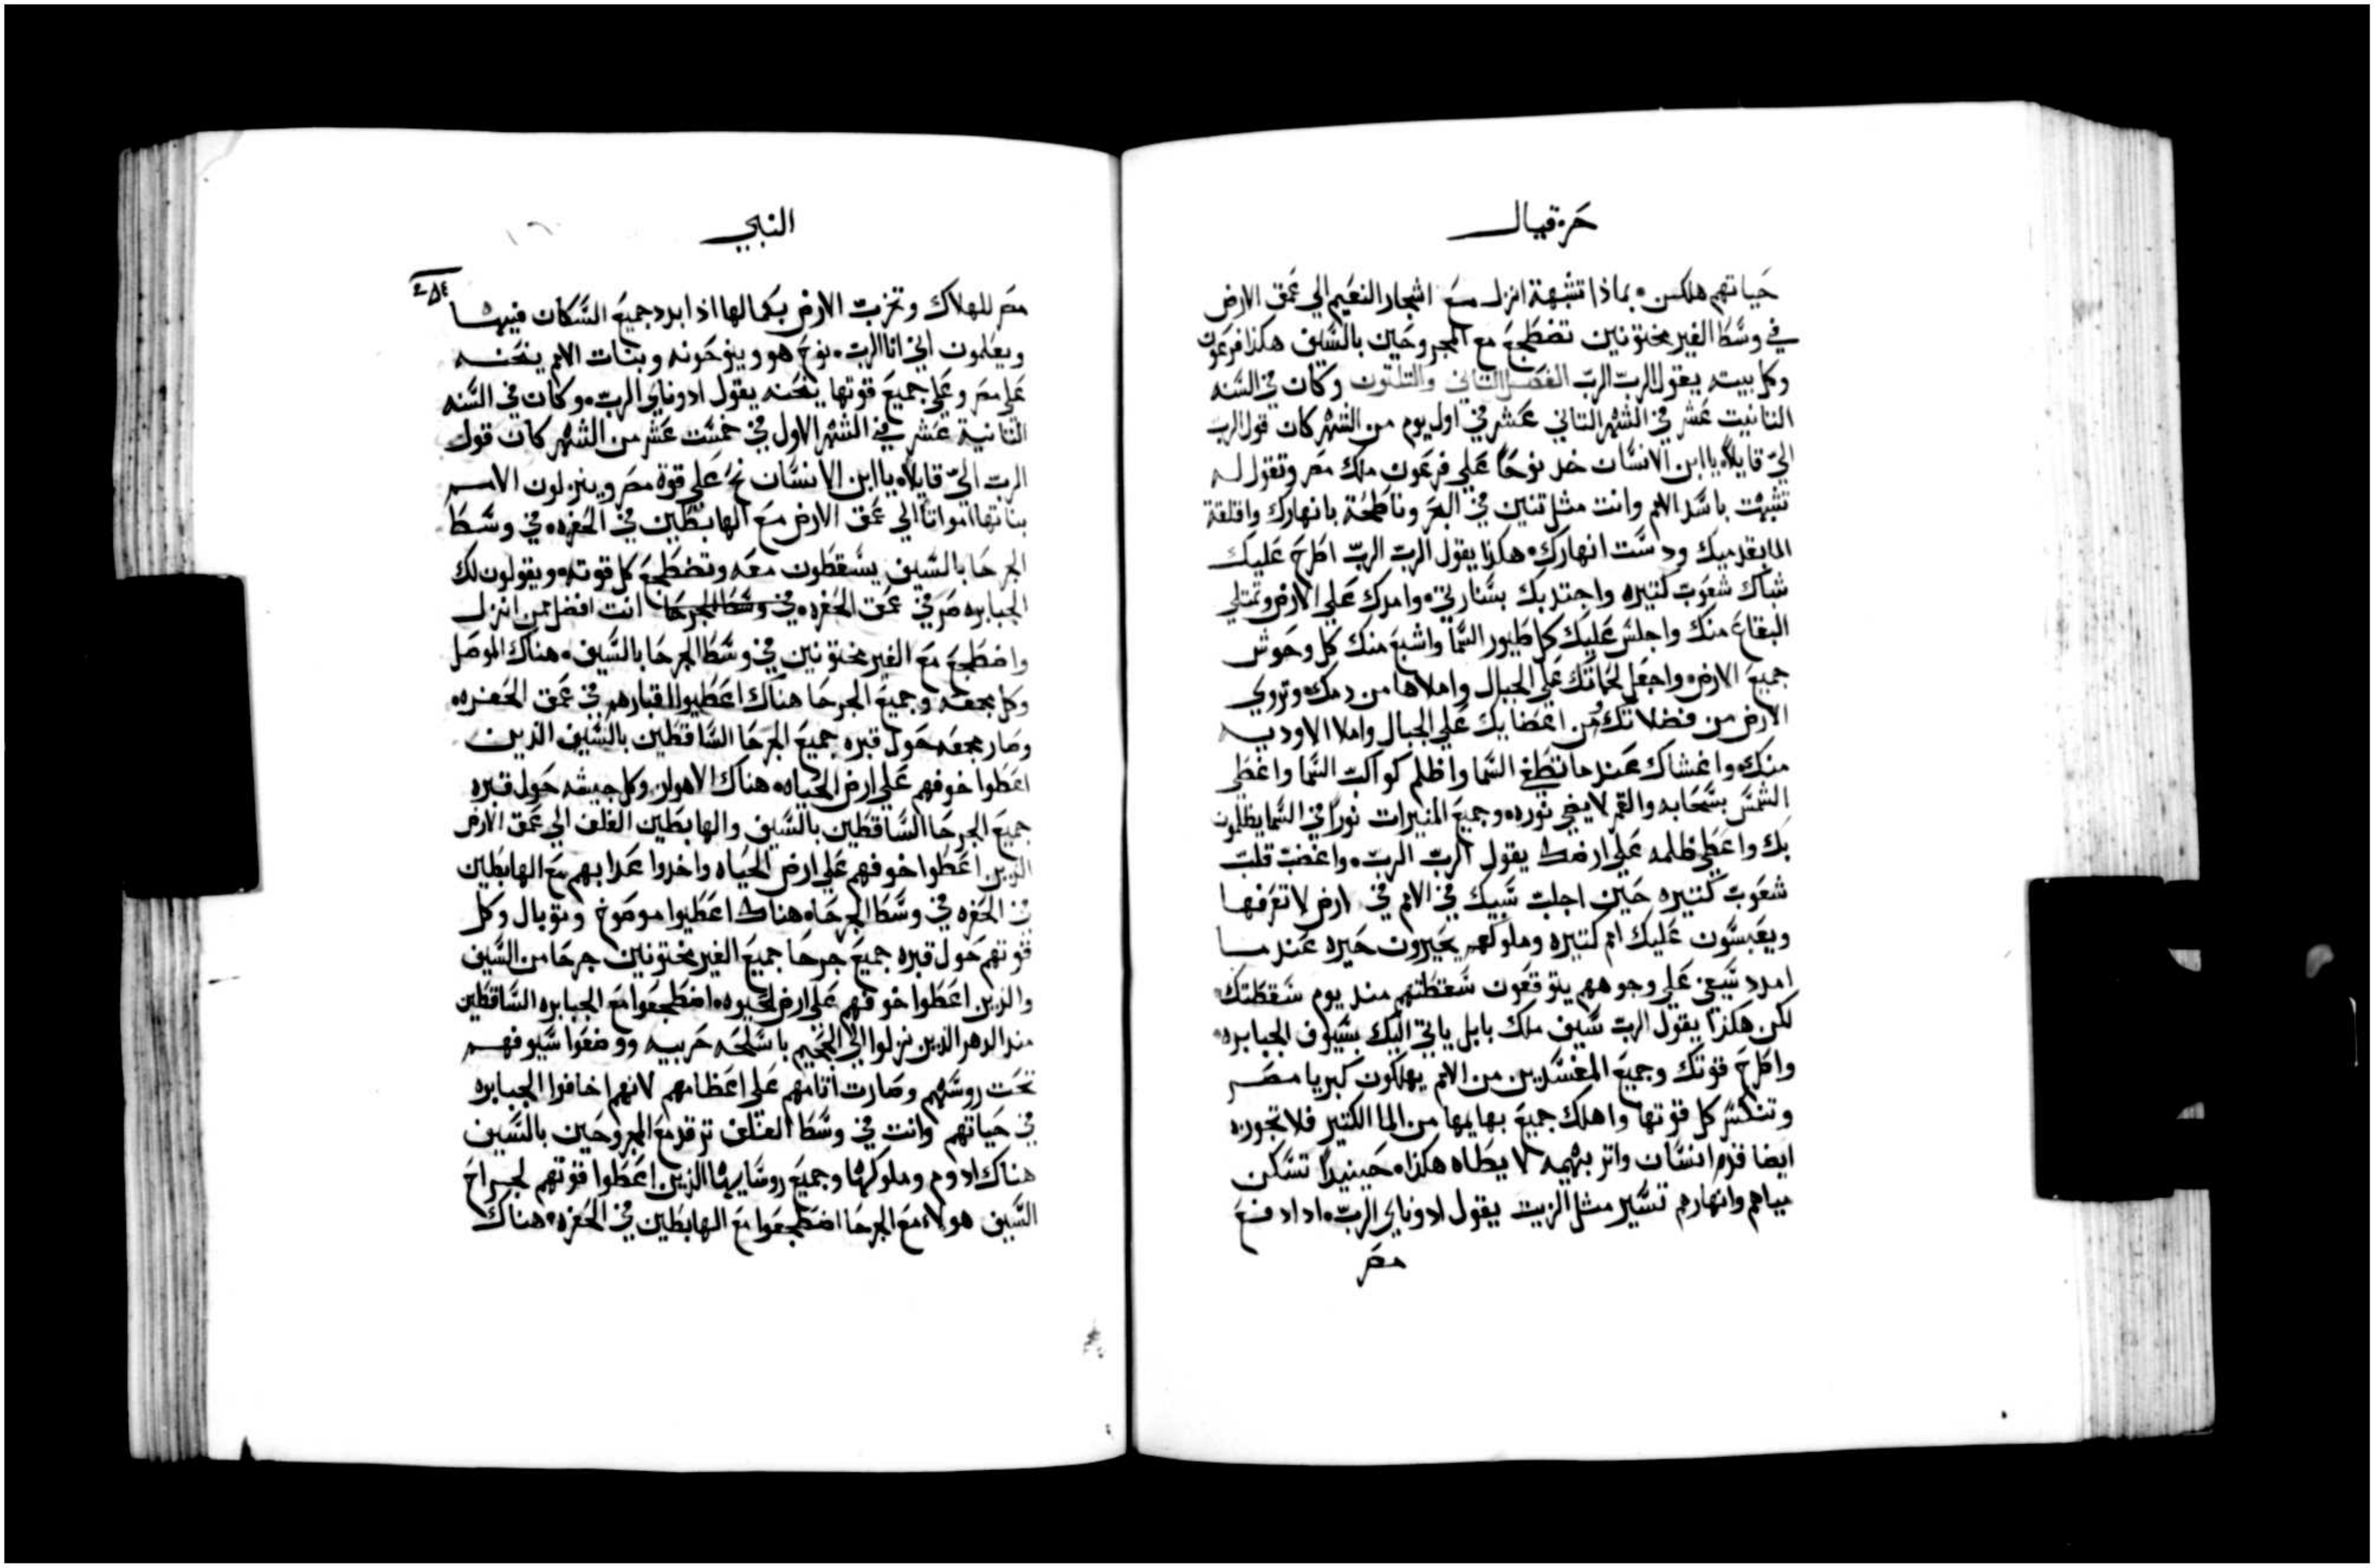 حزقيال
حياتهم هلكس بماذا تشبهة انزل مع اشجار النعيم الي عمق الارض
في وسط الغير مختونين تضطجع مع المجروحين بالسيف هكذا فرعون
وكل بيته يقول الرب الرب الفصل الثاني والثلثون وكان في السنه
الثانيت عشر في الشهر الثاني عشر في اول يوم من الشهر كان قول الرب
الي قايلاً يا ابن الانسان خد نوحاً علي فرعون ملك مصر وتقول له
تشبهت باسد الامم وانت مثل تنين في البحر وناطحة بانهارك واقلقة
الما بقدميك ودست انهارك هكذا يقول الرب الرب اطرح عليك
شباك شعوب كتيره واجتدبك بسنارتي وامدك علي الارض وتمتلي
البقاع منك واجلس عليك كل طيور السما واشبع منك كل وحوش
جميع الارض واجعل لحماتك علي الجبال واملاها من دمك وتروي
الارض من فضلاتك من اعضايك علي الجبال واملا الاوديه
منك واغشاك عندما تطغي السما واظلم كواكب السما واغطي
الشمس بسحابه والقمر لا يضي نوره وجميع المنيرات نوراً في السما يظلمون
بك واعطي ظلمه علي ارضك يقول الرب الرب واغضب قلب
شعوب كتيره حين اجلب سبيك في الامم في ارض لا تعرفها
ويعبسون عليك امم كتيره وملوكهم يحيرون حيره عندما
امدد سيفي علي وجوههم يتوقعون سقطتهم مند يوم سقطتك
لكن هكذا يقول الرب سيف ملك بابل ياتي اليك بسيوف الجبابره
واطرح قوتك وجميع المفسدين من الامم يهلكون كبريا مصر
وتنكسر كل قوتها واهلك جميع بهايمها من الما الكتير فلا تجوزه
ايضا قدم انسان واتر بهيمه لا يطاه هكذا حينيداً تسكن
مياهم وانهارهم تسير مثل الزيت يقول ادوناي الرب ادا دفع
مصر
النبي
٢٥٤
مصر للهلاك وتخرب الارض بكمالها اذا ابدد جميع السكان فيها
ويعلمون اني انا الرب نوح هو وينوحونه وبنات الامم ينحنه
علي مصر وعلي جميع قوتها ينحنه يقول ادوناي الرب وكان في السنه
الثانية عشر في الشهر الاول في خمست عشر من الشهر كان قول
الرب الي قايلاً يا ابن الانسان نح علي قوة مصر وينزلون الامم
بناتها امواتاً الي عمق الارض مع الهابطين في الحفره في وسط
الجرحا بالسيف يسقطون معه وتضطجع كل قوته ويقولون لك
الجبابره صر في عمق الحفره في وسط الجرحا انت افضل ممن انزل
واضطجع مع الغير مختونين في وسط الجرحا بالسيف هناك الموصل
وكل مجمعه وجميع الجرحا هناك اعطيوا القبارهم في عمق الحفره
وصار مجمعه حول قبره جميع الجرحا الساقطين بالسيف الذين
اعطوا خوفهم علي ارض الحياه هناك الاهواز وكل جيشه حول قبره
جميع الجرحا الساقطين بالسيف والهابطين الغلف الي عمق الارض
الذين اعطوا خوفهم علي ارض الحياه واخدوا عدابهم مع الهابطين
في الحفره في وسط الجرحا هناك اعطيوا موصوخ وثوبال وكل
قوتهم حول قبره جميع جرحا جميع الغير مختونين جرحا من السيف
والذين اعطوا خوفهم علي ارض الحيوه اضطجعوا مع الجبابره الساقطين
مند الدهر الذين نزلوا الي الجحيم باسلحه حربيه ووضعوا سيوفهم
تحت روسهم وصارت اتامهم علي اعظامهم لانهم اخافوا الجبابره
في حياتهم وانت في وسط الغلف ترقد مع المجروحين بالسيف
هناك ادوم وملوكها وجميع روسايها الذين اعطوا قوتهم لجراح
السيف هولاء مع الجرحا اضطجعوا مع الهابطين في الحفره هناك